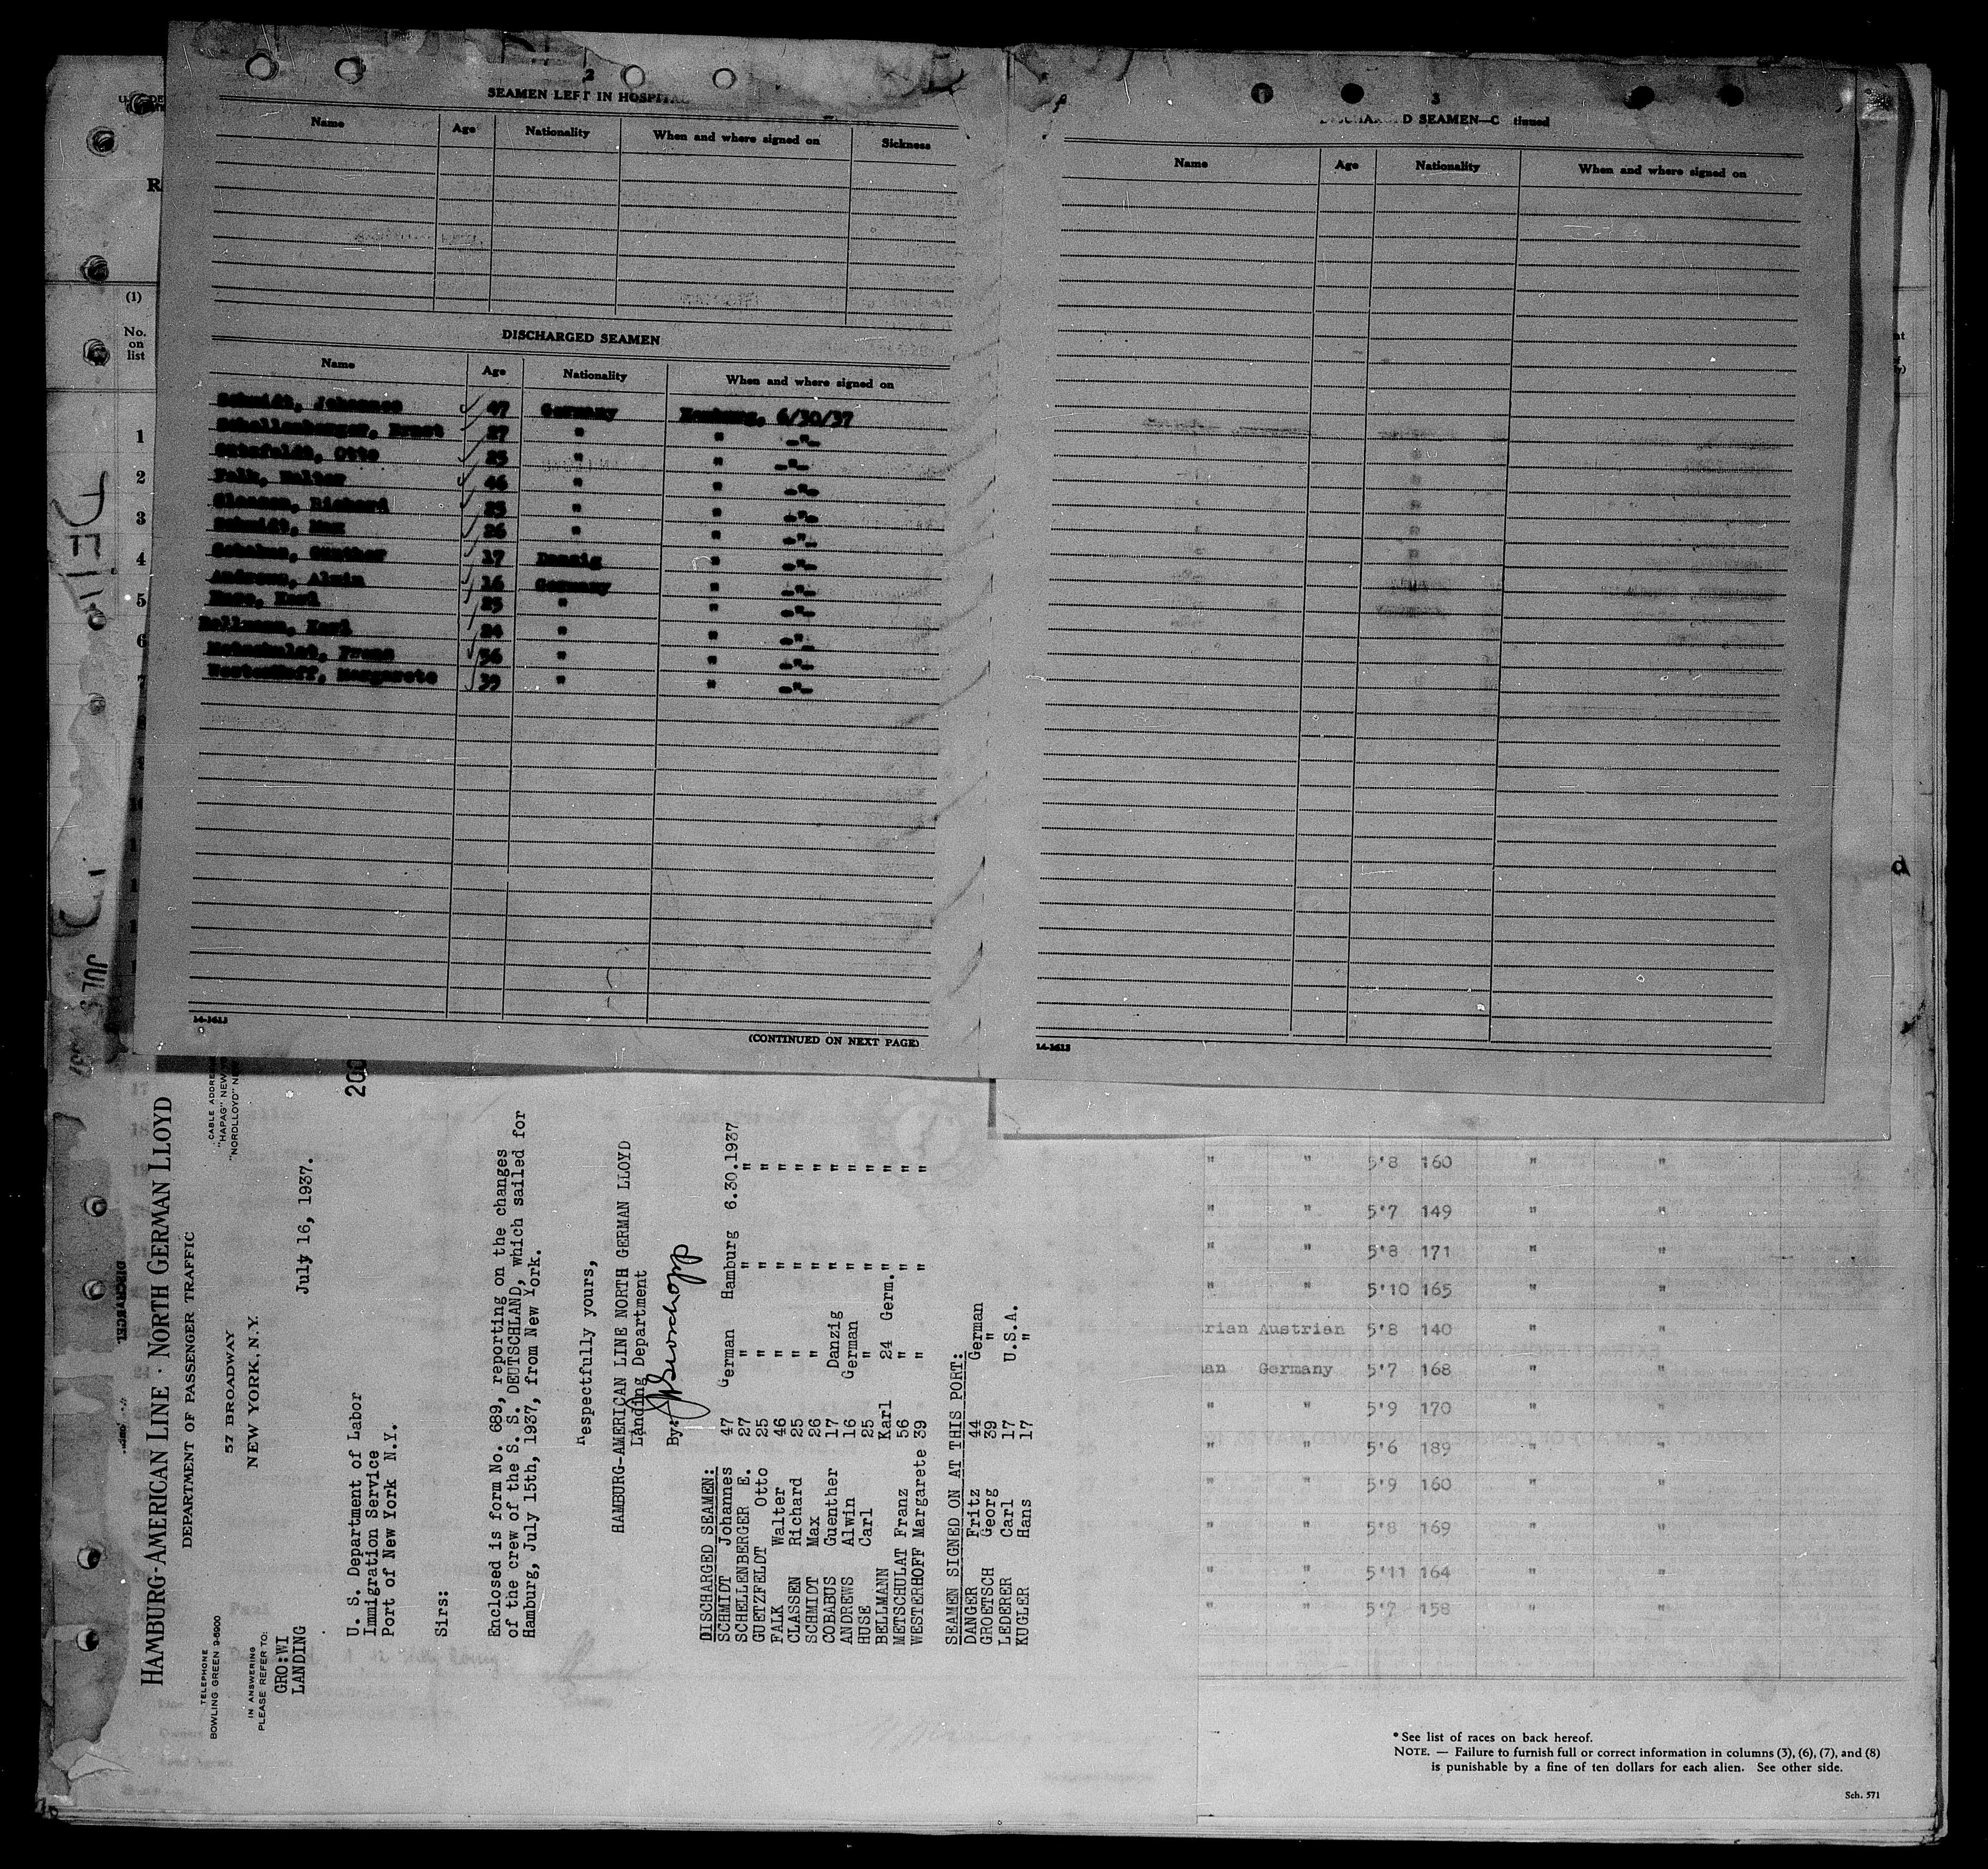 2
SEAMEN LEFT IN HOSPITAL
Name Age Nationality When and where signed on Sickness
DISCHARGED SEAMEN
Name Age Nationality When and where signed on
Schmidt, Johannes 47 Germany Hamburg, 6/30/37
Schellenberger, Ernst 27 " " -"-
Otto 25 " " -"-
Falk, Walter 46 " " -"-
Richard 25 " " -"-
Schmidt, Max 26 " " -"-
Gunther 17 Danzig " -"-
Andrews, Alwin 16 Germany " -"-
Huse, Karl 25 " " -"-
Karl 24 " " -"-
Metschulat, Franz 56 " " -"-
Westerhoff, Margarete 39 " " -"-
14-1613
(CONTINUED ON NEXT PAGE)
3
D SEAMEN—C tinued
Name Age Nationality When and where signed on
14-1613
(1)
No.
on
list
1
2
3
4
5
6
7
JUL
200
HAMBURG-AMERICAN LINE · NORTH GERMAN LLOYD
DEPARTMENT OF PASSENGER TRAFFIC
57 BROADWAY
NEW YORK, N.Y.
TELEPHONE
BOWLING GREEN 9-6900
CABLE ADDRES
"HAPAG" NEW
"NORDLLOYD" NE
IN ANSWERING
PLEASE REFER TO:
GRO:WI
LANDING
July 16, 1937.
U. S. Department of Labor
Immigration Service
Port of New York N.Y.
Sirs:
Enclosed is form No. 689, reporting on the changes
of the crew of the S. S. DEUTSCHLAND, which sailed for
Hamburg, July 15th, 1937, from New York.
Respectfully yours,
HAMBURG-AMERICAN LINE NORTH GERMAN LLOYD
Landing Department
By:
DISCHARGED SEAMEN:
SCHMIDT Johannes 47 German Hamburg 6.30.1937
SCHELLENBERGER E. 27 " " "
GUETZFELDT Otto 25 " " "
FALK Walter 46 " " "
CLASSEN Richard 25 " " "
SCHMIDT Max 26 " " "
COBABUS Guenther 17 Danzig " "
ANDREWS Alwin 16 German " "
HUSE Carl 25 " " "
BELLMANN Karl 24 Germ. " "
METSCHULAT Franz 56 " " "
WESTERHOFF Margarete 39 " " "
SEAMEN SIGNED ON AT THIS PORT:
DANGER Fritz 44 German
GROETSCH Georg 39 "
LEDERER Carl 17 U.S.A.
KUGLER Hans 17 "
" " 5'8 160 " "
" " 5'7 149 " "
" " 5'8 171 " "
" " 5'10 165 " "
trian Austrian 5'8 140 " "
man Germany 5'7 168 " "
" " 5'9 170 " "
" " 5'6 189 " "
" " 5'9 160 " "
" " 5'8 169 " "
" " 5'11 164 " "
" " 5'7 158 " "
*See list of races on back hereof.
NOTE. — Failure to furnish full or correct information in columns (3), (6), (7), and (8)
is punishable by a fine of ten dollars for each alien. See other side.
Sch. 571